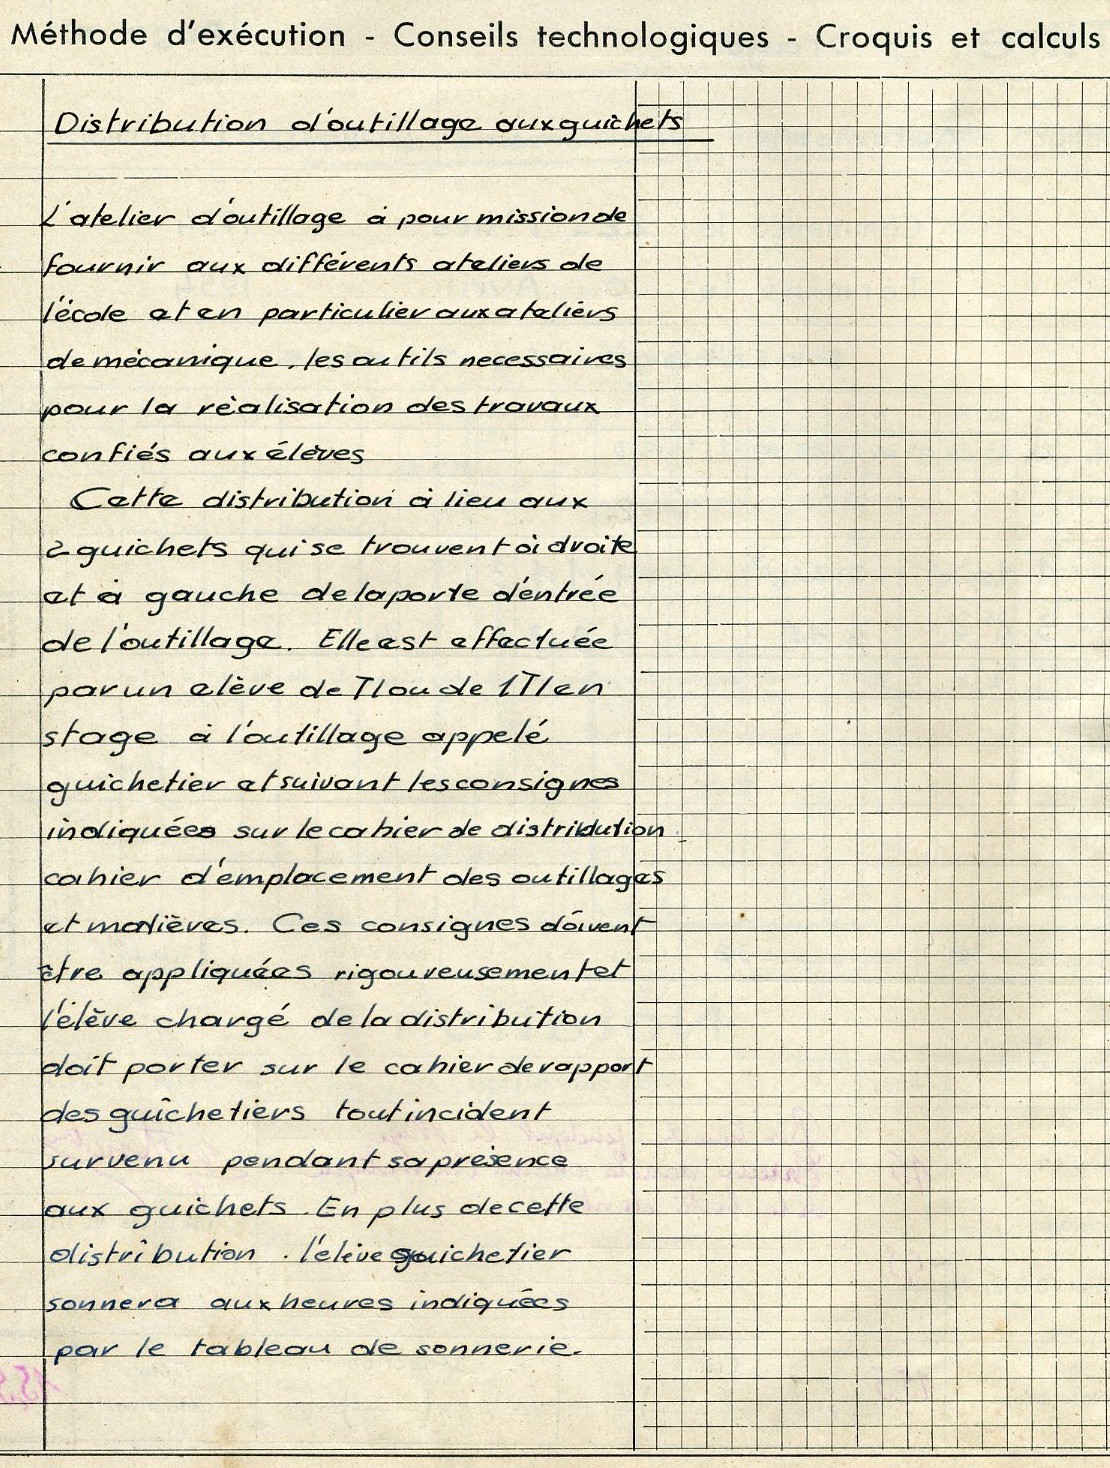 Méthode d'exécution - Conseils technologiques - Croquis et calculs
Distribution d'outillage aux guichets
L'atelier d'outillage à pour mission de
fournir aux différents ateliers de
l'école et en particulier aux ateliers
de mécanique, les outils necessaires
pour la réalisation des travaux
confiés aux élèves
Cette distribution à lieu aux
2 guichets qui se trouvent à droite
et à gauche de la porte d'éntrée
de l'outillage. Elle est effectuée
par un elève de T1 ou de 1T1 en
stage à l'outillage appelé
guichetier et suivant les consignes
indiquées sur le cahier de distribution
cahier d'emplacement des outillages
et matières. Ces consignes doivent
être appliquées rigoureusement et
l'élève chargé de la distribution
doit porter sur le cahier de rapport
des guichetiers tout incident
survenu pendant sa présence
aux guichets. En plus de cette
distribution. l'élève guichetier
sonnera aux heures indiquées
par le tableau de sonnerie.